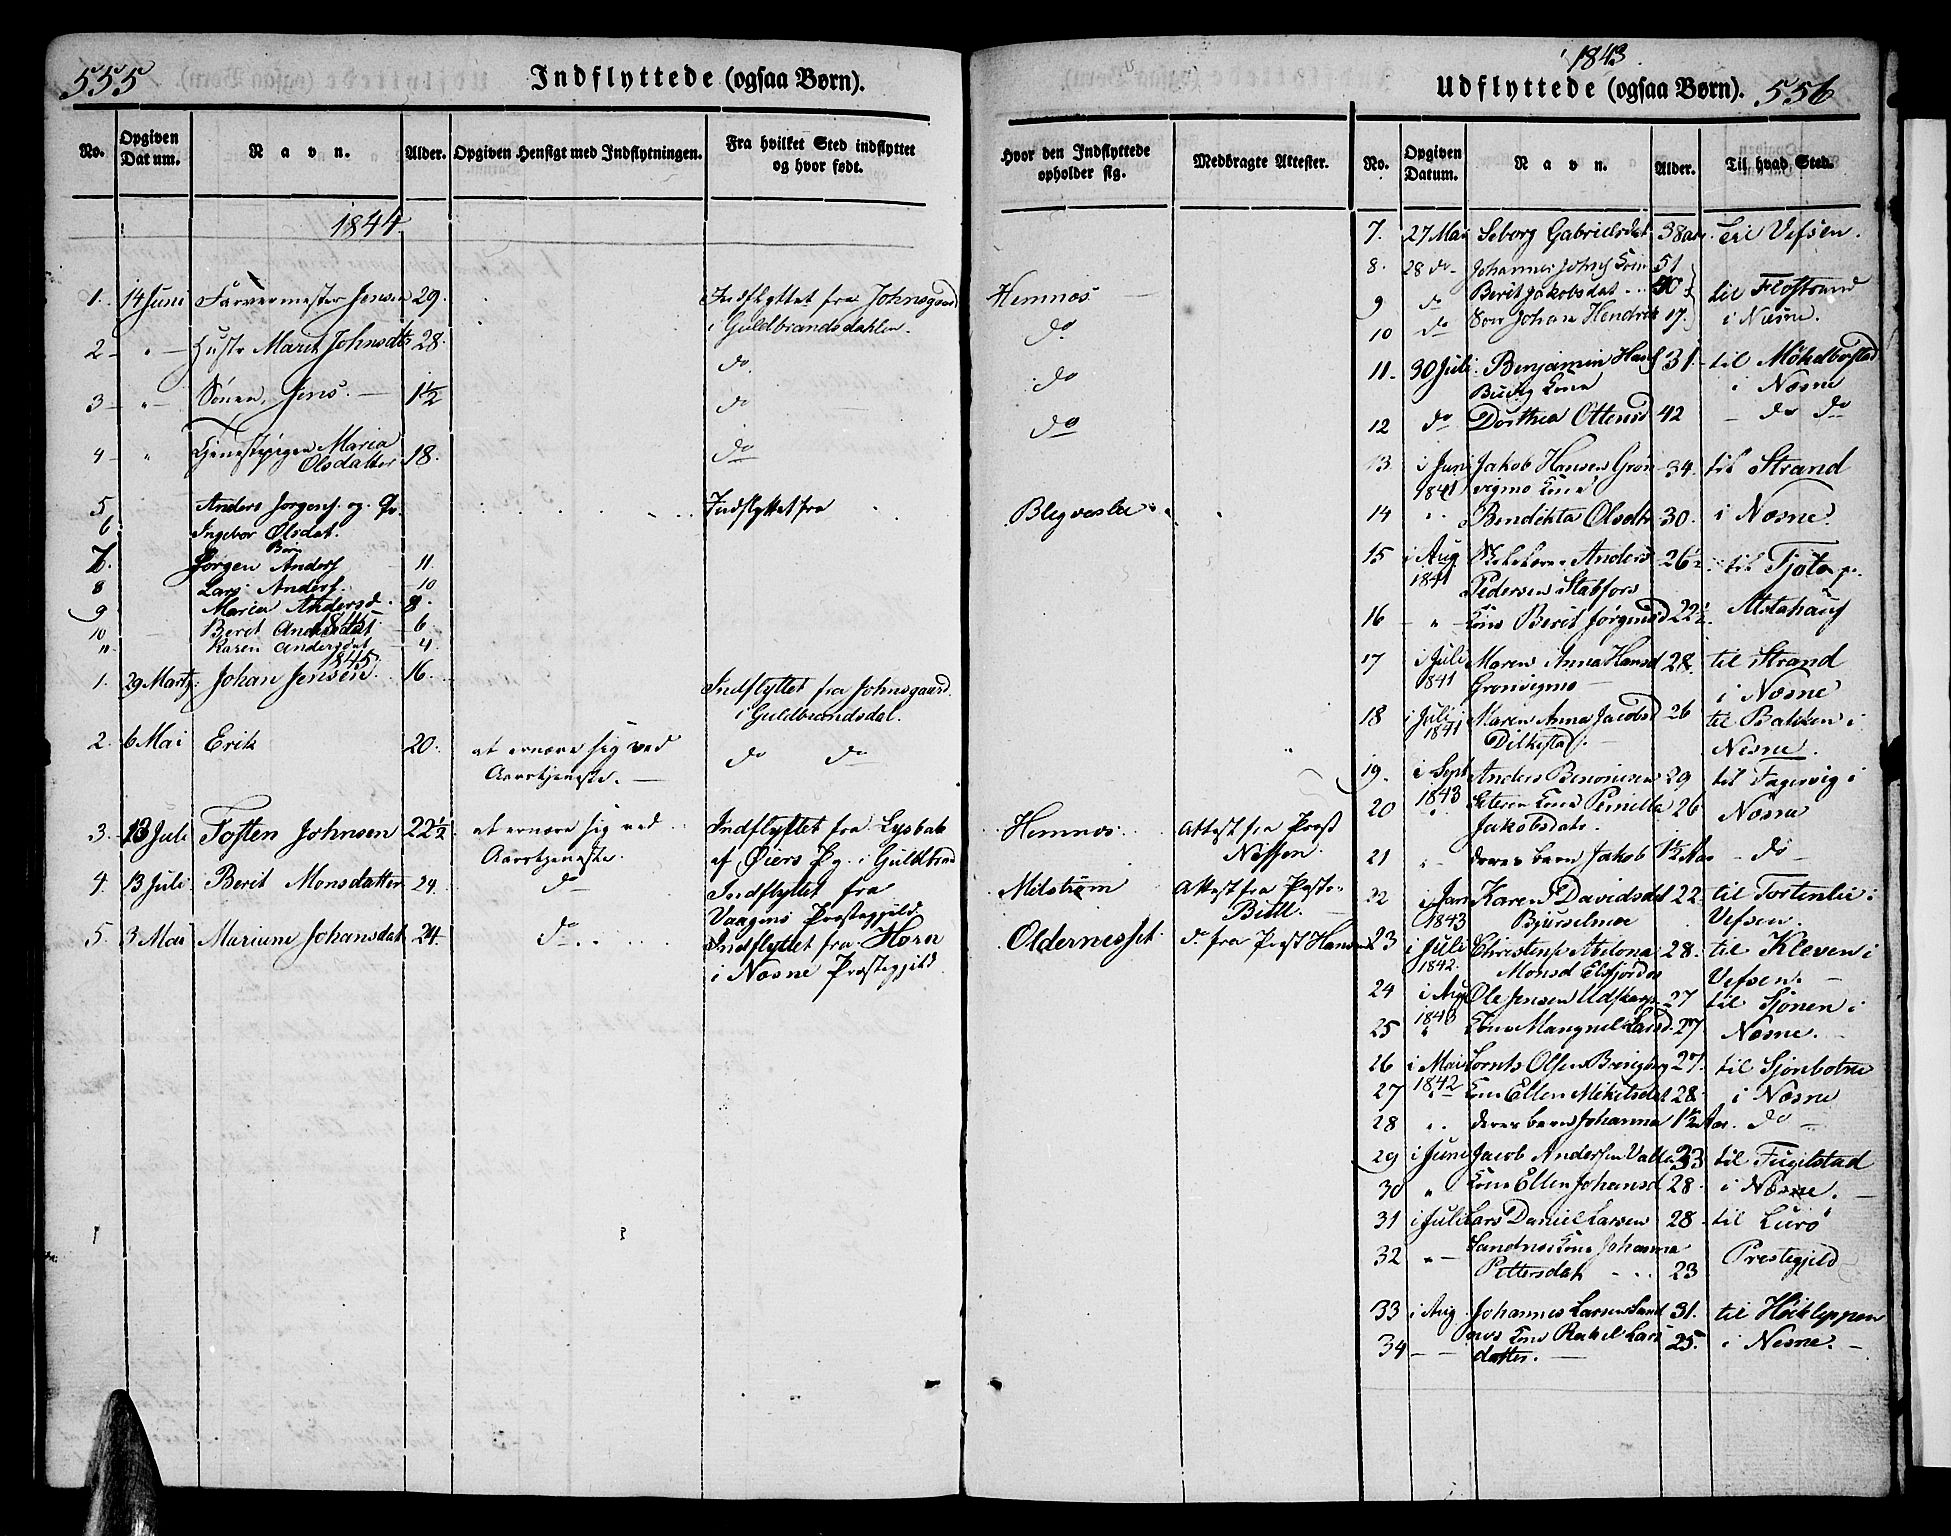 555
Indflyttede (ogsaa Børn).
No. Opgiven Datum. Navn. Alder. Opgiven Hensigt med Indflytningen. Fra hvilket Sted indflyttet og hvor født. Hvor den Indflyttede opholder sig. Medbragte Attester.
1844
1. 14 Juni Farvermester Jensen 29. Indflyttet fra Johnsgaard Hemnæs
i Guldbrandsdahlen.
2 " Hustr Marit Johnsdtr 28. do do
3 " Sønnen Jens. 1½ do do
4 " Tjenestepigen Maria 18. do do
Olsdatter
5 Anders Jørgens. og Indflyttet fra
6 Ingebor Olsdat.
Børn
7. Jørgen Anders. 11
8 Lars Anders. 10
9 Maria Andersd. 8.
10 Berit Andersdat 6
11 Karen Andersdat 4
1845
1. 29 Marts Johan Jensen 16. Indflyttet fra Johnsgaard
i Guldbrandsdal.
2. 6 Mai Erik 20. at ernære sig ved do do
Aarstjeneste.
3. 13 Juli Tosten Johnsen 22½ at ernære sig ved Indflyttet fra Lysbak Hemnæs. Attest fra Præst
Aarstjeneste. af Øiers Pg. i Guldbrand Nissen.
4. 13 Juli Berit Monsdatter 24 do Indflyttet fra Milstrøm Attest fra Præste
Vaagens Præstegjeld.
5. 3 Mai Mariane Johansdat 24 do Indflyttet fra Horn Oldernesset do fra Præst Hansen
i Næsne Præstegjeld
1843.
Udflyttede (ogsaa Børn). 556
No. Opgiven Datum. Navn. Alder. Til hvad Sted.
7. 27 Mai Seborg Gabrielsdat 38 aar. til Vefsen.
8. 28 do Johannes Johns. 51
9 do Berit Jakobsdat 50 til Flostrand
10 do Søn Johan Hendrik 17. i Næsne.
11. 30 Juli. Benjamin Hans. 31. til
Kona i Næsne
12 do Dorthea Ottensd 42 do do
13 i Juni Jakob Hansen Grøn 34. til Strand
1841 vigmo Kona
14 " Bendikta Olsdtr 30. i Næsne.
15 i Aug Anders 26½ til Tjøtø p.
1841 Pedersen Stabfors
16 " Kona Berit Jørgensd 22½ Alstahaug
17 i Juli Maren Anna Hansd 28. til Strand
1841 Grønvigmo i Næsne
18 i Juli Maren Anna Jacobsd 26 til Bakken i
1841 Nesne.
19. i Sept Anders Benonisen 29 til Fagervig i
20 1843 Kona Pernilla 26 Næsne
Jakobsdatr.
21 " deres barn Jakob 1½ Aar do
22 i Jan Karen Davidsdat 22 til Tortenlie i
1843 Bjurselmoe Vefsen.
23 i Juli Christens. Abelona 28. til Kleven i
1842. Monsd Elsfjorden Vefsen.
24 i Aug Ole Jensen 27 til Sjonen i
25 1843 Kona Larsd. 27 Næsne.
26 i Mai Lornts Olsen 27. til Sjonbotne
27 1842 Kona Ellen Mikelsdat 28. i Næsne
28 " deres barn Johanna 1½ Aar. do
29 i Juni Jacob Andersen 23 til Fugelstad
30 " Kona Ellen Johansd 28. i Næsne.
31 i Juli Lars Daniel Larsen 28. til Lurø
32 " Sandnæs Kona Johanna Prestegjeld
Pettersdat 23
33 i Aug. Johannes Larsen Sand 31. til Høikleppen
34 næs Kona Rakel Lars 25. i Nesne.
datter.